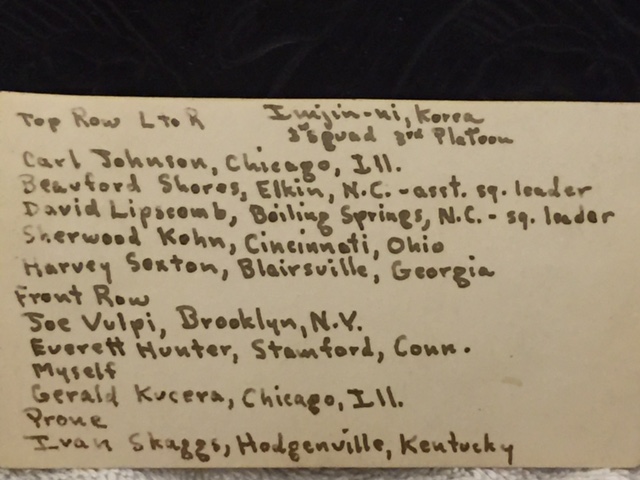 Top Row L to R Imjin-ni, Korea
3rd Platoon
Carl Johnson, Chicago, Ill.
Beauford Shores, Elkin, N.C. - asst. sq. leader
David Lipscomb, Boiling Springs, N.C. - sq. leader
Sherwood Kohn, Cincinnati, Ohio
Harvey Sexton, Blairsville, Georgia
Front Row
Joe Vulpi, Brooklyn, N.Y.
Everett Hunter, Stamford, Conn.
Myself
Gerald Kucera, Chicago, Ill.
Prone
Ivan Skaggs, Hodgenville, Kentucky